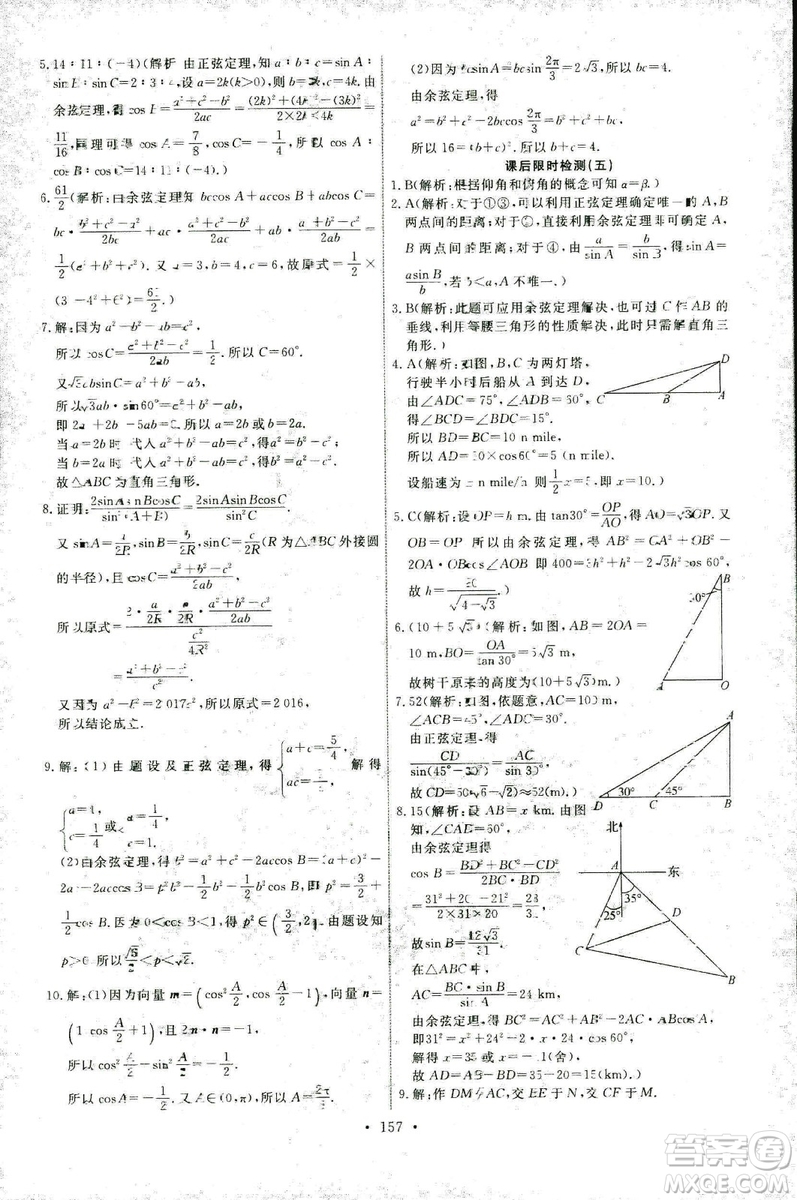 5. 14∶11∶(-4)(解析 由正弦定理,知 a∶b∶c=sinA∶
sinB∶sinC=2∶3∶4,设 a=2k(k>0),则 b=3k,c=4k.由
余弦定理,得 cosB=(a²+c²-b²)/2ac=((2k)²+(4k)²-(3k)²)/(2×2k×4k)=
11/16,同理可得 cosA=7/8,cosC=-1/4,所以 cosA∶cosB∶
cosC=14∶11∶(-4).)
6. 61/2(解析:由余弦定理知 bccosA+accosB+abcosC=
bc·(b²+c²-a²)/2bc+ac·(a²+c²-b²)/2ac+ab·(a²+b²-c²)/2ab=
1/2(a²+b²+c²).又 a=3,b=4,c=6,故原式=1/2×
(3²+4²+6²)=61/2.)
7. 解:因为 a²+b²-c²=ab,
所以 cosC=(a²+b²-c²)/2ab=1/2.所以 C=60°.
又√3absinC=
所以√3ab·sin60°=a²+b²-ab,
即
当 a=2b 时 代入 a²+b²-ab=c²,得a²=b²+c²;
当 b=2a 时 代入 a²+b²-ab=c²,得b²=a²+c².
故△ABC为直角三角形.
8. 证明:2sinAsinBcosC/sin²(A+B)=2sinAsinBcosC/sin²C
又 sinA=a/2R,sinB=b/2R,sinC=c/2R(R 为△ABC 外接圆
的半径),且 cosC=(a²+b²-c²)/2ab
所以原式=(2·a/2R·b/2R·(a²+b²-c²)/2ab)/(c²/4R²)
=(a²+b²-c²)/c²
又因为 a²+b²=2 017c²,所以原式=2 016,
所以结论成立.
9. 解:(1) 由题设及正弦定理,得{a+c=5/4, ac=1/4, 解得
{a=1, c=1/4 或{a=1/4, c=1.
(2)由余弦定理,得 b²=a²+c²-2accosB=(a+c)²-
2a-2accosB=p²b²-1/2b²-
1/2cosB.因为 0<cosB<1,得 p²∈(3/2,2).由题设知
p>0,所以
10. 解:(1)因为向量 m=(cos²A/2,cosA/2),n=
(1,cosA/2+1),且 m·n=-1/2
所以 cosA=-1/2.又 A∈(0,π),所以 A=2π/3.
(2)因为1/2bcsinA=1/2bcsin2π/3=2√3,所以 bc=4.
由余弦定理,得
a²=b²+c²-2bccos2π/3=b²+c²+bc,
所以 16=(b+c)²,故 b+c=4.
课后限时检测(五)
1. B(解析:根据仰角和俯角的概念可知 α=β.)
2. A(解析:对于①③,可以利用正弦定理确定唯一的 A,B
两点间的距离;对于②,直接利用余弦定理即可确定 A,
B 两点间的距离;对于④,由a/sinA=b/sinB,得 sinA=
asinB/b,若 b<a,A 不唯一.)
3. B(解析:此题可应用余弦定理解决,也可过 C 作 AB 的
垂线,利用等腰三角形的性质解决,还可解直角三
角形.)
4. A(解析:如图,B,C 为两灯塔,
行驶半小时后船从 A 到达 D,
由∠ADC=75°,∠ADB=60°,
得∠BCD=∠BDC=15°.
所以 BD=BC=10 n mile.
所以 AD=10×cos60°=5 (n mile).
设船速为 x n mile/h,则1/2x=5,即 x=10.)
D
C
B
A
5. C(解析:设 OP=h m.由 tan30°=OP/AO,得 AO=√3OP.又
OB=OP 由余弦定理,得 AB²=OA²+OB²-
2OA·OBcos60°,即 400=3h²+h²-2√3h²cos 60°,
故 h=20/√(4-√3).)
B
30°
A
O
6. (10+5√3)(解析:如图,AB=2OA=
10 m,BO=OA/tan30°=5√3 m,
故树干原来的高度为(10+5√3) m.)
7. 52(解析:如图,依题意,AC=10米,
∠ACB=45°,∠ADC=30°.
由正弦定理,得
CD/sin(45°-30°)=AC/sin30°
A
30°
45°
D
C
B
8. 15(解析:设 AB=x km.由图
知,∠CAD=60°,
由余弦定理得
cosB=(BD²+BC²-CD²)/(2BC·BD)
=(31²+20²-21²)/(2×31×20)=23/31,
故 sinB=12√3/31.
在△ABC中,
AC=BC·sinB/sin60°=24 km.
由余弦定理,得 BC²=AC²+AB²-2AC·ABcosA,
即31²=x²+24²-2·x·24·1/2,
解得 x=35 或 x=-11(舍),
故 AD=AB-BD=15(km).)
北
东
A
35°
25°
D
C
B
9. 解:作 DM∥AC,交 BE 于 N,交 CF 于 M.
· 157 ·
答案圈
MXQE.COM